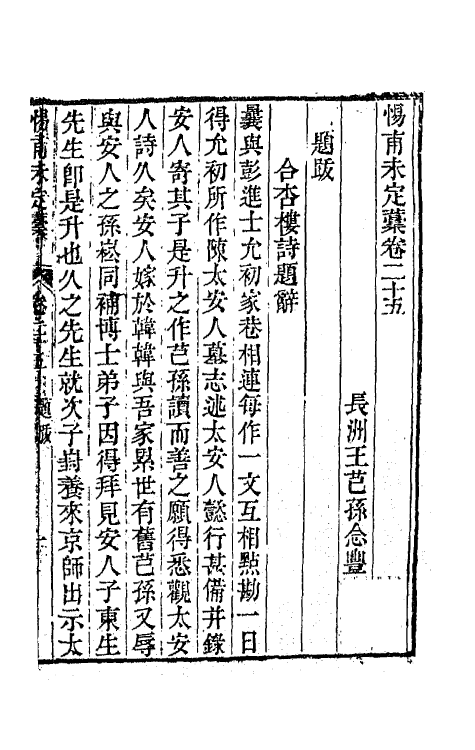 惕甫未定藳卷二十五
長洲王芑孫念豐
題跋
合杏樓詩題辭
曩與彭進士允初家巷相連每作一文互相點勘一日
得允初所作陳太安人墓志述太安人懿行甚備并錄
安人寄其子是升之作芑孫讀而善之願得悉觀太安
人詩久矣安人嫁於韓韓與吾家累世有舊芑孫又辱
與安人之孫崧同補博士弟子因得拜見安人子東生
先生卽是升也久之先生就次子封養來京師出示太
惕甫未定藳 卷二十五 題跋 一